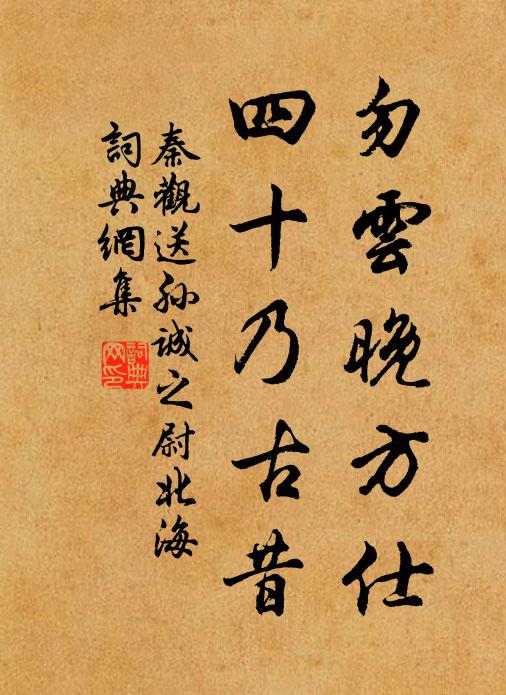 勿雲晚方仕
四十乃古昔
秦觀送孙誠之尉北海
詞典網集
詞典網印